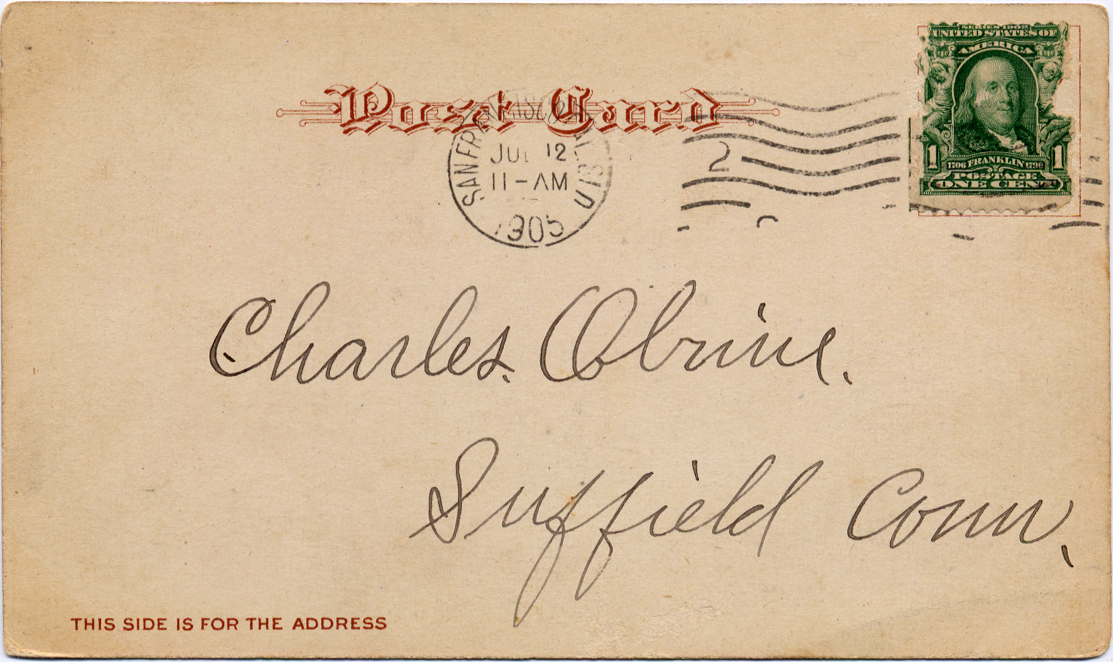 Post Card
SERIES 1902
UNITED STATES OF
AMERICA
SAN FRANCISCO, CAL. STA.
JUL 12
11-AM
1905
2
1 1
1706 FRANKLIN 1790
POSTAGE
ONE CENT
Charles. Obrine.
Suffield Conn,
THIS SIDE IS FOR THE ADDRESS